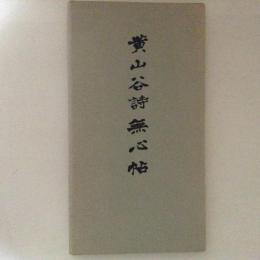 黄山谷詩無心帖